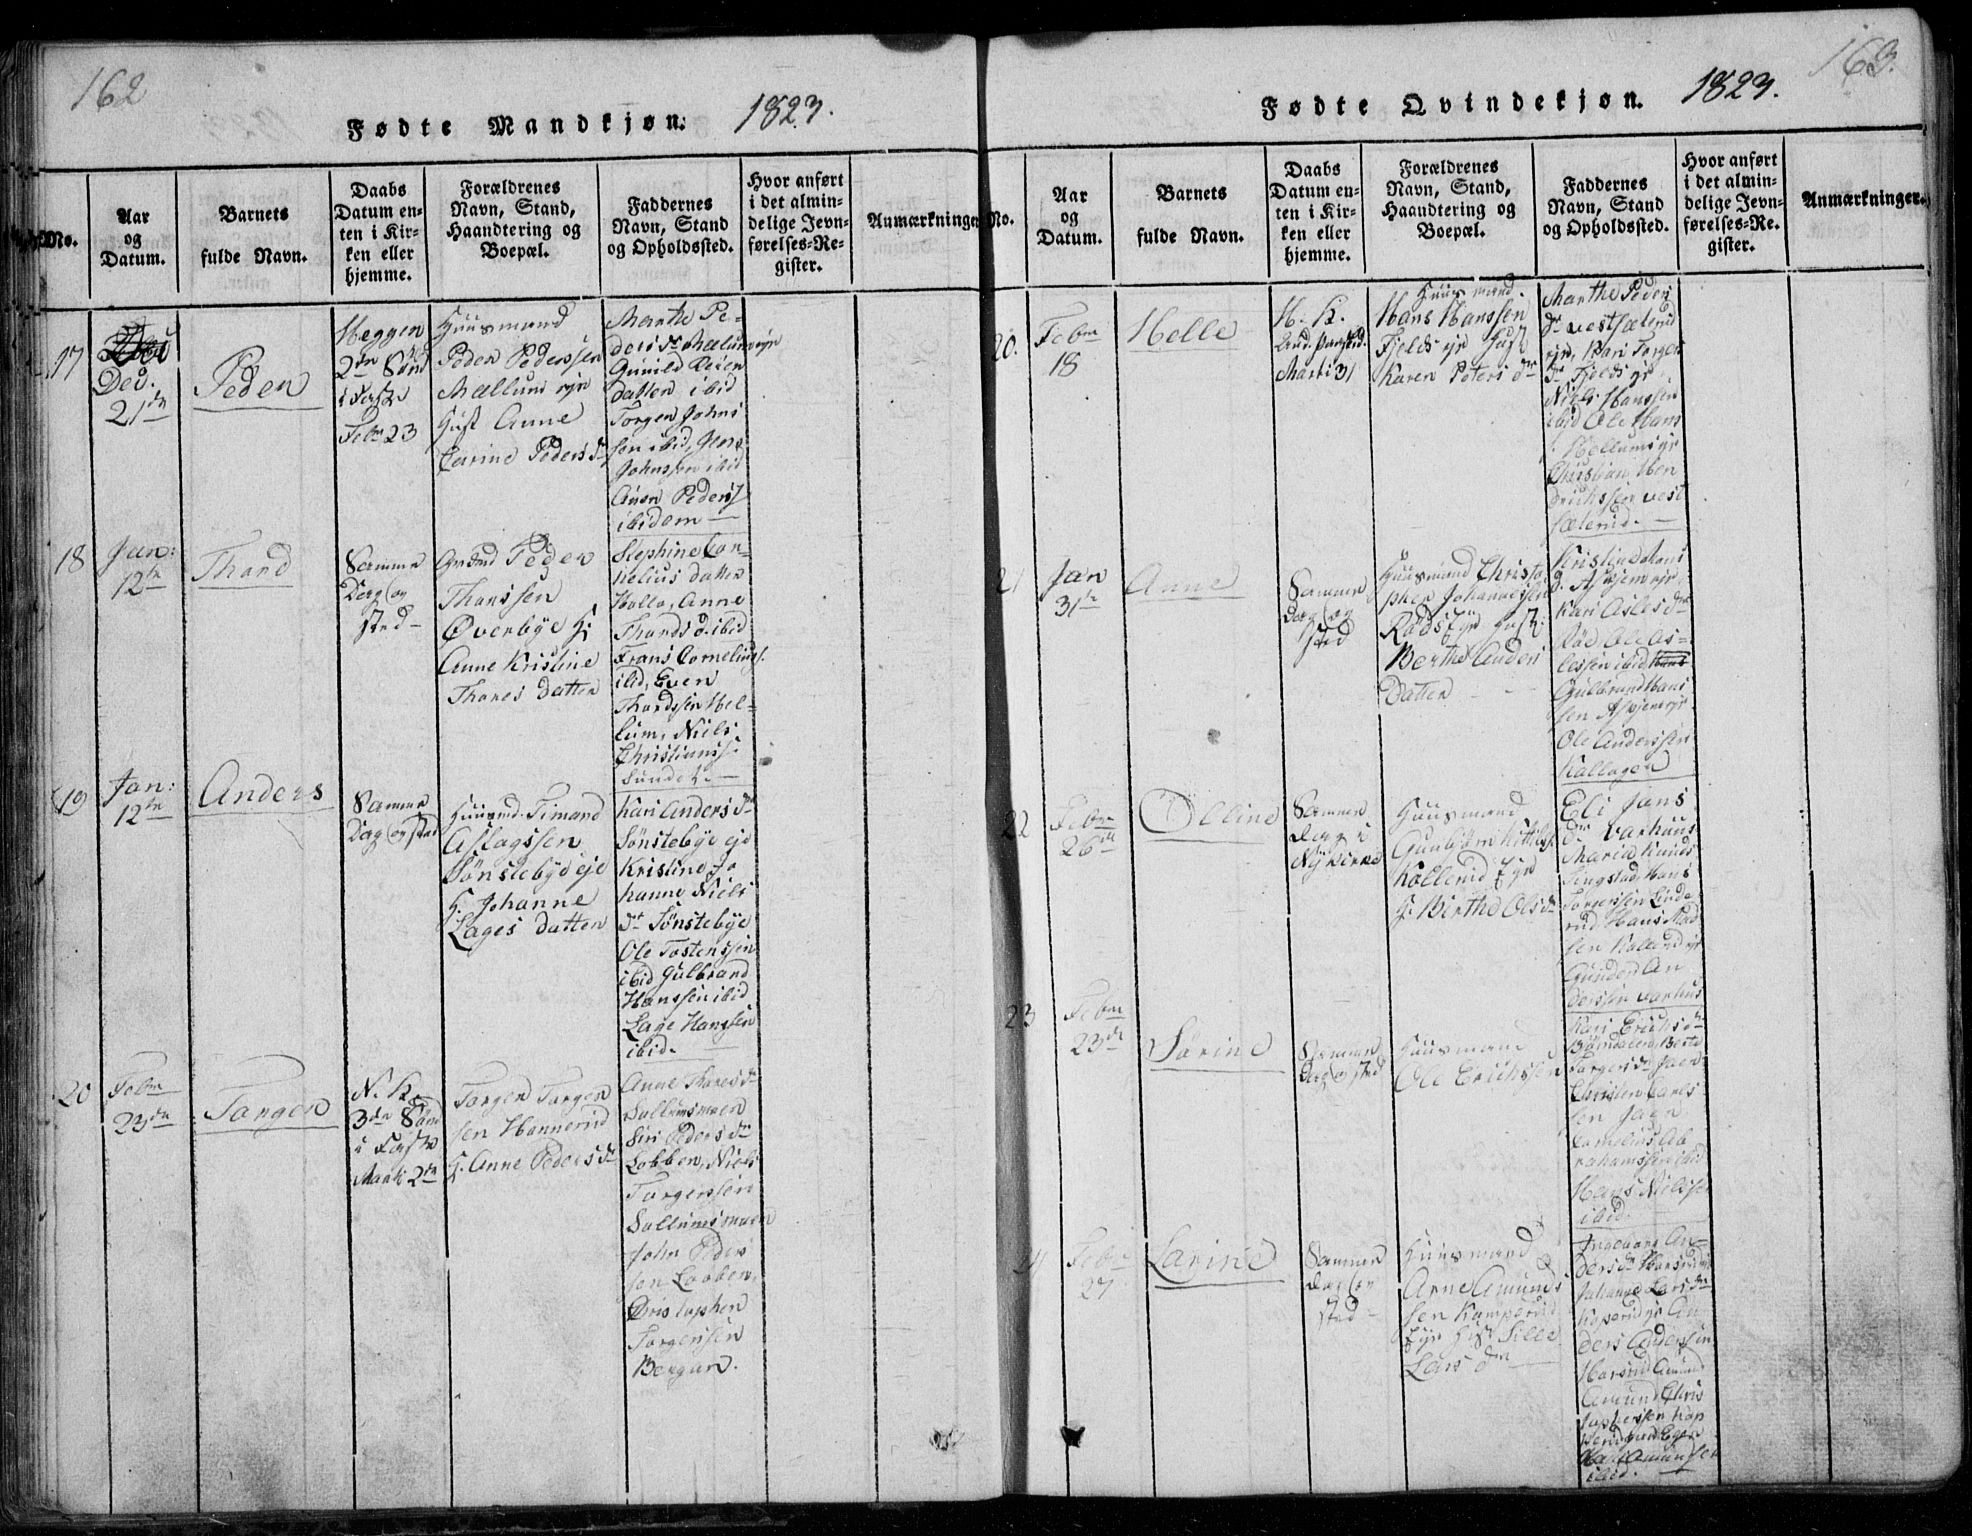 162
Fødte Mandkjøn. 1823.
No.
Aar
og
Datum.
Barnets
fulde Navn.
Daabs
Datum en-
ten i Kir-
ken eller
hjemme.
Forældrenes
Navn, Stand,
Haandtering og
Boepæl.
Faddernes
Navn, Stand
og Opholdssted.
Hvor anført
i det almin-
delige Jevn-
førelses-Re-
gister.
Anmærkninger
17
Dec.
21de
Peder
Heggen
2den Sønd
i Faste
Febr 23
Huusmand
Peder Pederssen
Mællum eje
Hust Anne
Carine Peders dr
Marthe Pe-
ders dr Mælum eje
Gunild
datter ibid
Torger Johns
sen ibid,
Johnssen ibid
Peders
ibidem
18
Jan:
12te
Thord
Samme
Dag og
sted
Grdmd Peder
Thorssen
Øverbye H:
Anne Kristine
Thores datter
Stephine Cor-
nelius datter
Holla, Anne
Thords d. ibid
Frans Cornelius s.
ibid, Even
Thordssen Hel-
lum, Niels
Christians s.
Sundet.
19
Jan:
12te
Anders
Samme
Dag og sted
Huusmd. Simand
Aslagssen
Sønstebye eje
H: Johanne
Lages datter
Kari Anders dr
Sønstebye eje
Kristine Jo
hanne Niels
dr Sønstebye
Ole Tostenssen
ibid Gulbrand
Hanssen ibid
Lage Hanssen
ibid.
20
Febr
23de
Torger
N. K.
3de Sønd
i Faste
Marti 2de
Torger Torger
sen Hannerud
H. Anne Peders dr
Anne Thores dr
Sollumsmoen
Siri Peders dr
Lobben, Niels
Torgerssen
Sollumsmoen
John Peders
sen Lobben,
Christopher
Torgerssen
Bergan.
163.
Fødte Qvindekjøn. 1823.
No.
Aar
og
Datum.
Barnets
fulde Navn.
Daabs
Datum en-
ten i Kir-
ken eller
hjemme.
Forældrenes
Navn, Stand,
Haandtering og
Boepæl.
Faddernes
Navn, Stand
og Opholdssted.
Hvor anført
i det almin-
delige Jevn-
førelses-Re-
gister.
Anmærkninger.
20.
Febr
18
Helle
H. K.
Marti 31
Huusmand
Hans Hanssen
Fjelds eje Hust
Karen Peters dr
Marthe Peders
dr Vestsæterud
eje, Kari Torger
dr Fjelds eje
Niels Hanssen
ibid Ole Hans
s. Hellums eje
Christian Hen
drichssen Vest
sæterud.
21
Jan
31te
Anne
Samme
Dag og
sted
Huusmand Christo
pher Johannessen
Røds Eje Hust:
Berthe Anders
Datter
Kristine Hans
d. Askjem eje
Kari Asles dr
Rød Ole As-
lessen ibid
Gulbrand Hans
sen Askjem eje
Ole Anderssen
Kallager
22
Febr
26de
Olline
Samme
Dag i
Nykirke
Huusmand
Gunbjørn Kittels s.
Kollerud Eje
H: Berthe Ols dr
Eli Jans
dr Varhuus
Maria Knuds
Tingstad, Hans
Torgerssen Linde
rud Hans
sen Kollerud eje
Gunder An
derssen Varhus
23
Febr
23de
Sørine
Samme
Dag og sted
Huusmand
Ole Erichssen
Kari Erichs dr
Torgers dr Jaen
Christen Carls
sen Jaen
Cornelius Ab
rahamssen ibid
Hans Nielssen
ibid.
Febr
27
Larine
Samme
Dag og
sted
Huusmand
Arne Amunds
sen Kamperud
Eje Hust Sille
Lars dr
Ingeborg An-
ders dr Horsrud
Johanne Lars dr
Koperud eje An
ders Anderssen
Horsrud
Amund Chris
tophersen Kop
perud
Amunssen
ibid.